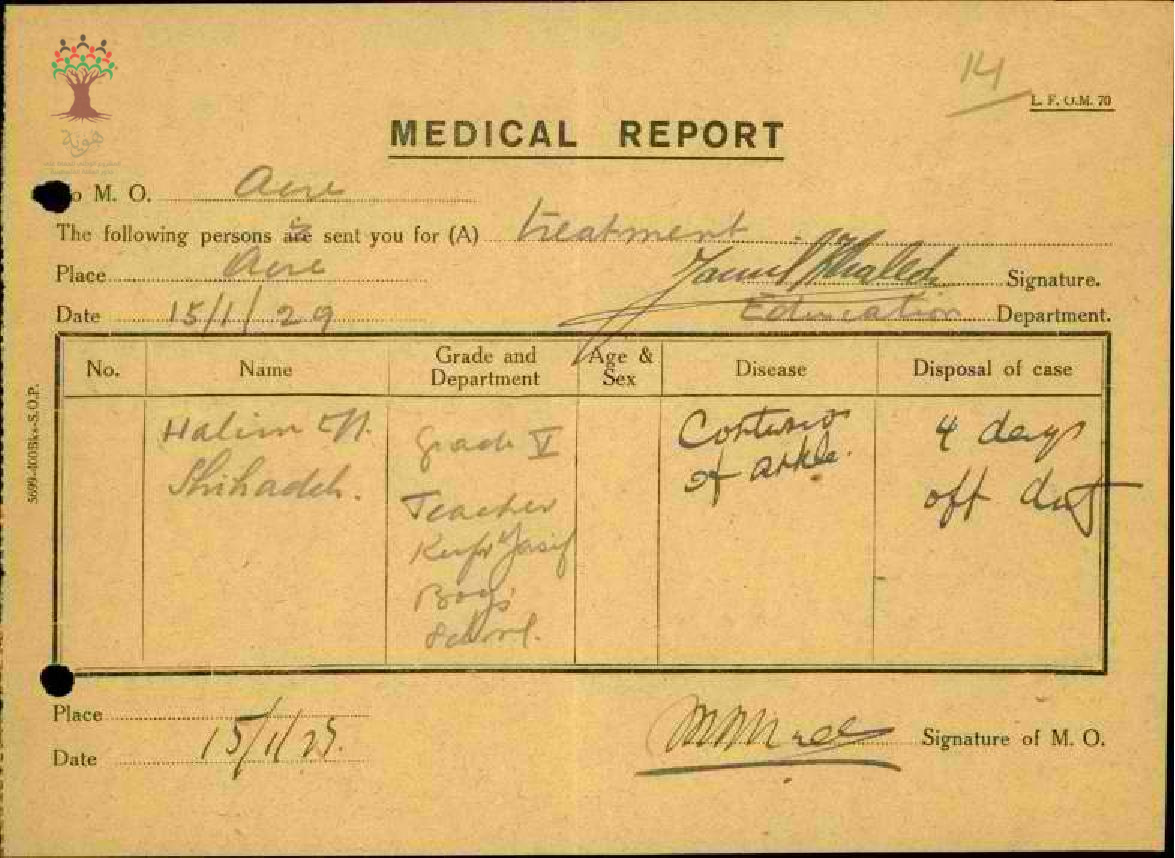 14
L. F. O.M. 70
هوية
MEDICAL REPORT
To M. O. Acre
The following persons are sent you for (A) treatment
Place Acre
Jamil Khaled Signature.
Date 15/1/29
Education Department.
No. Name Grade and Department Age & Sex Disease Disposal of case
Halim N. Shihadeh.
Grade V
Teacher
Kufr Yasif
Boys'
School.
Contusio
of ankle.
4 days
off dut
5699-400Bks-S.O.P.
Place
Date 15/1/29.
Signature of M. O.